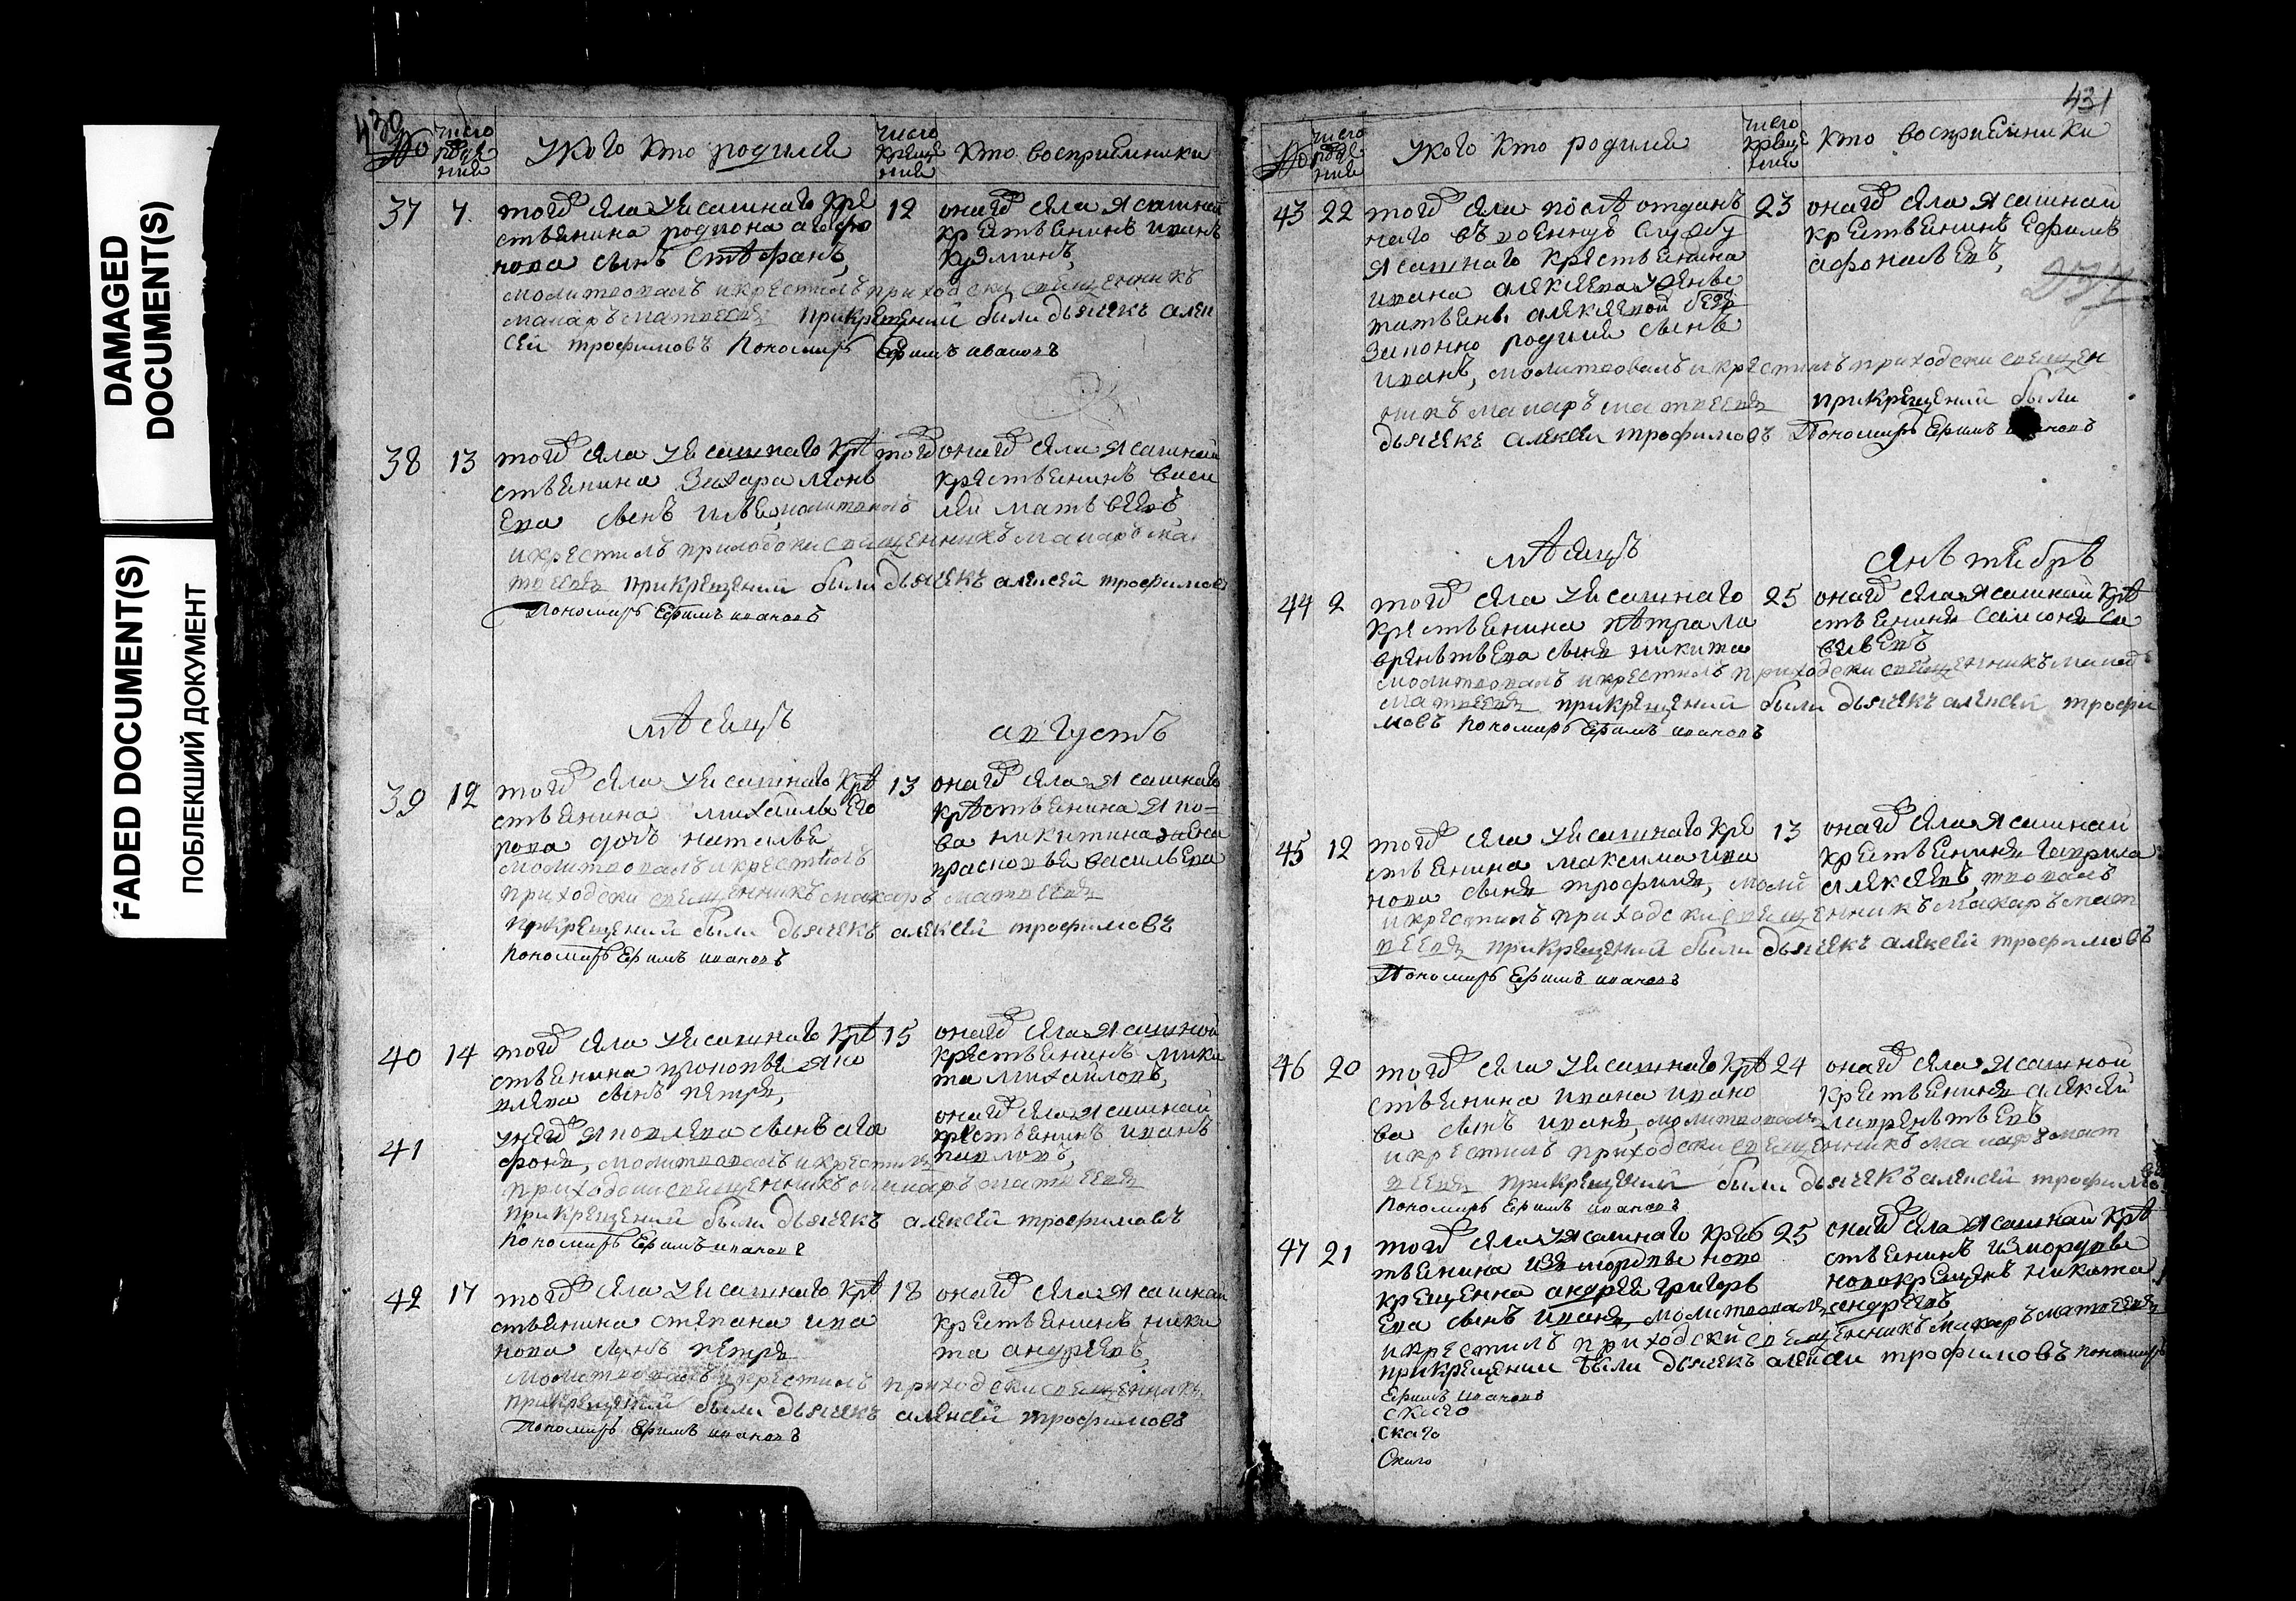 DAMAGED
DOCUMENT(S)
FADED DOCUMENT(S)
ПОБЛЕКШИЙ ДОКУМЕНТ
430
№ число рожде ния
у кого кто родился
число креще ния
кто восприемники
37 7. тогож села уясашнаго кре
ственина родиона
нова сынъ стефанъ,
12 онагож села ясашнай
крественинъ иванъ
молитвовалъ и крестилъ приходски священникъ
макаръ матвеевъ прикрещении были дьячекъ алек
сей трофимовъ пономарь ефимъ ивановъ
38 13 тогож села уясашнаго крѣ
ственина захара леонь
ева сынъ илья, молитвовалъ
тогож онагож села ясашнай
крественинъ васи
лей матвеевъ
и крестилъ приходски священникъ макаръ мат
веевъ прикрещении были дьячекъ алексей трофимовъ
пономарь ефимъ ивановъ
мѣсяцъ августъ
39 12 тогож села уясашнаго крѣ
ственина михаила его
рова дочь наталья
молитвовалъ и крестилъ
13 онагож села ясашнаго
крѣственина яко=
ва никитина жена
прасковья васильева
приходски священникъ макаръ матвеевъ
прикрещении были дьячекъ алексей трофимовъ
пономарь ефимъ ивановъ
40 14 тогож села уясашнаго крѣ
ственина прокопья яко
влева сынъ петръ,
15 онагож села ясашной
крественинъ ники
та михайловъ,
41 унегож яковлева сынъ ага
фонъ, молитвовалъ и крестилъ
онагож села ясашнай
крественинъ иванъ
павловъ,
приходски священникъ макаръ матвеевъ
прикрещении были дьячекъ алексей трофимовъ
пономарь ефимъ ивановъ
42 17 тогож села уясашнаго крѣ
ственина степана ива
нова сынъ петръ
18 онагож села ясашнай
крественинъ ники
та андреевъ,
молитвовалъ и крестилъ приходски священникъ
прикрещении были дьячекъ алексей трофимовъ
пономарь ефимъ ивановъ
431
№ число рожде ния
у кого кто родился
число креще ния
кто восприемники
43 22 тогож села послѣ отдан
наго въ военную службу
ясашнаго крественина
ивана алексеева
алексевой без
законно родился сынъ
23 онагож села ясашнай
крественинъ ефимъ
афонасьевъ,
иванъ, молитвовалъ и крестилъ приходски священ
никъ макаръ матвеевъ прикрещении были
дьячекъ алексей трофимовъ пономарь ефимъ ивановъ
мѣсяцъ сеньтябрь
44 2 тогож села уясашнаго
крественина пѣтра ла
вреньтьева сынъ никита
25 онагож села ясашнай крѣ
ственинъ самсонъ са
вельевъ
молитвовалъ и крестилъ приходски священникъ макаръ
матвеевъ прикрещении были дьячекъ алексей трофи
мовъ пономарь ефимъ ивановъ
45 12 тогож села уясашнаго кре
ственина максима ива
нова сынъ трофимъ, моли
13 онагож села ясашнай
крественинъ гаврила
алексеевъ, твовалъ
и крестилъ приходски священникъ макаръ мат
веевъ прикрещении были дьячекъ алексей трофимовъ
пономарь ефимъ ивановъ
46 20 тогож села уясашнаго крѣ
ственина ивана ивано
ва сынъ иванъ, молитвовалъ
24 онагож села ясашной
крественинъ алексей
лавреньтьевъ
и крестилъ приходски священникъ макаръ мат
веевъ прикрещении были дьячекъ алексей трофимовъ
пономарь ефимъ ивановъ
47 21 тогож села уясашнаго крес
твенина измордвы ново
крещенна андрея григорь
ева сынъ иванъ, молитвовалъ
25 онагож села ясашнай крѣ
ственинъ измордвы
новокрещенъ никита
андреевъ,
и крестилъ приходской священникъ макаръ матвеевъ
прикрещении были дьячекъ алексей трофимовъ пономарь
ефимъ ивановъ
скаго